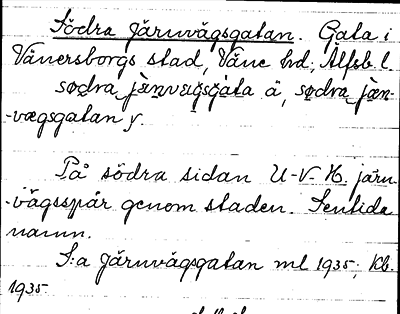 Södra Järnvägsgatan. Gata i
Vänersborgs stad, Väne hd, Älfsb. l.
sødra jænvegsgata ä, sødra jæn-
-vægsgatan y.
På södra sidan U-V-H. järn-
-vägsspår genom staden. Sentida
namn.
S:a Järnvägsgatan ml 1935, Kb.
1935.